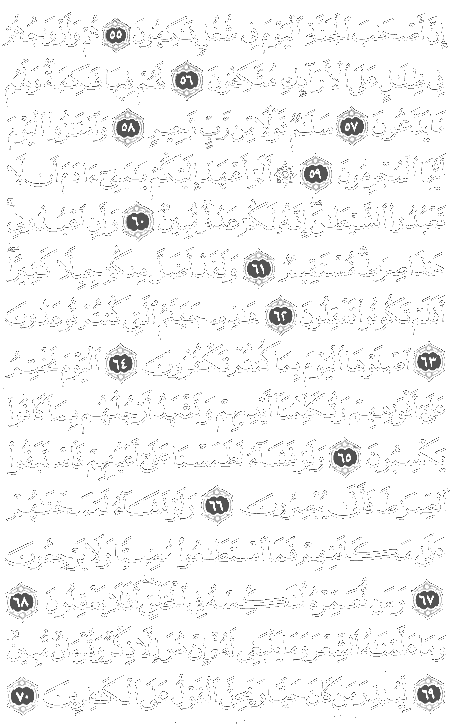 إِنَّ أَصْحَٰبَ ٱلْجَنَّةِ ٱلْيَوْمَ فِى شُغُلٍ فَٰكِهُونَ ٥٥ هُمْ وَأَزْوَٰجُهُمْ
فِى ظِلَٰلٍ عَلَى ٱلْأَرَآئِكِ مُتَّكِـُٔونَ ٥٦ لَهُمْ فِيهَا فَٰكِهَةٌ وَلَهُم
مَّا يَدَّعُونَ ٥٧ سَلَٰمٌ قَوْلًا مِّن رَّبٍّ رَّحِيمٍ ٥٨ وَٱمْتَٰزُوا۟ ٱلْيَوْمَ
أَيُّهَا ٱلْمُجْرِمُونَ ٥٩ ۞ أَلَمْ أَعْهَدْ إِلَيْكُمْ يَٰبَنِىٓ ءَادَمَ أَن لَّا
تَعْبُدُوا۟ ٱلشَّيْطَٰنَ إِنَّهُۥ لَكُمْ عَدُوٌّ مُّبِينٌ ٦٠ وَأَنِ ٱعْبُدُونِى
هَٰذَا صِرَٰطٌ مُّسْتَقِيمٌ ٦١ وَلَقَدْ أَضَلَّ مِنكُمْ جِبِلًّا كَثِيرًا
أَفَلَمْ تَكُونُوا۟ تَعْقِلُونَ ٦٢ هَٰذِهِۦ جَهَنَّمُ ٱلَّتِى كُنتُمْ تُوعَدُونَ
٦٣ ٱصْلَوْهَا ٱلْيَوْمَ بِمَا كُنتُمْ تَكْفُرُونَ ٦٤ ٱلْيَوْمَ نَخْتِمُ
عَلَىٰٓ أَفْوَٰهِهِمْ وَتُكَلِّمُنَآ أَيْدِيهِمْ وَتَشْهَدُ أَرْجُلُهُم بِمَا كَانُوا۟
يَكْسِبُونَ ٦٥ وَلَوْ نَشَآءُ لَطَمَسْنَا عَلَىٰٓ أَعْيُنِهِمْ فَٱسْتَبَقُوا۟
ٱلصِّرَٰطَ فَأَنَّىٰ يُبْصِرُونَ ٦٦ وَلَوْ نَشَآءُ لَمَسَخْنَٰهُمْ
عَلَىٰ مَكَانَتِهِمْ فَمَا ٱسْتَطَٰعُوا۟ مُضِيًّا وَلَا يَرْجِعُونَ
٦٧ وَمَن نُّعَمِّرْهُ نُنَكِّسْهُ فِى ٱلْخَلْقِ أَفَلَا يَعْقِلُونَ ٦٨
وَمَا عَلَّمْنَٰهُ ٱلشِّعْرَ وَمَا يَنۢبَغِى لَهُۥٓ إِنْ هُوَ إِلَّا ذِكْرٌ وَقُرْءَانٌ مُّبِينٌ
٦٩ لِّيُنذِرَ مَن كَانَ حَيًّا وَيَحِقَّ ٱلْقَوْلُ عَلَى ٱلْكَٰفِرِينَ ٧٠